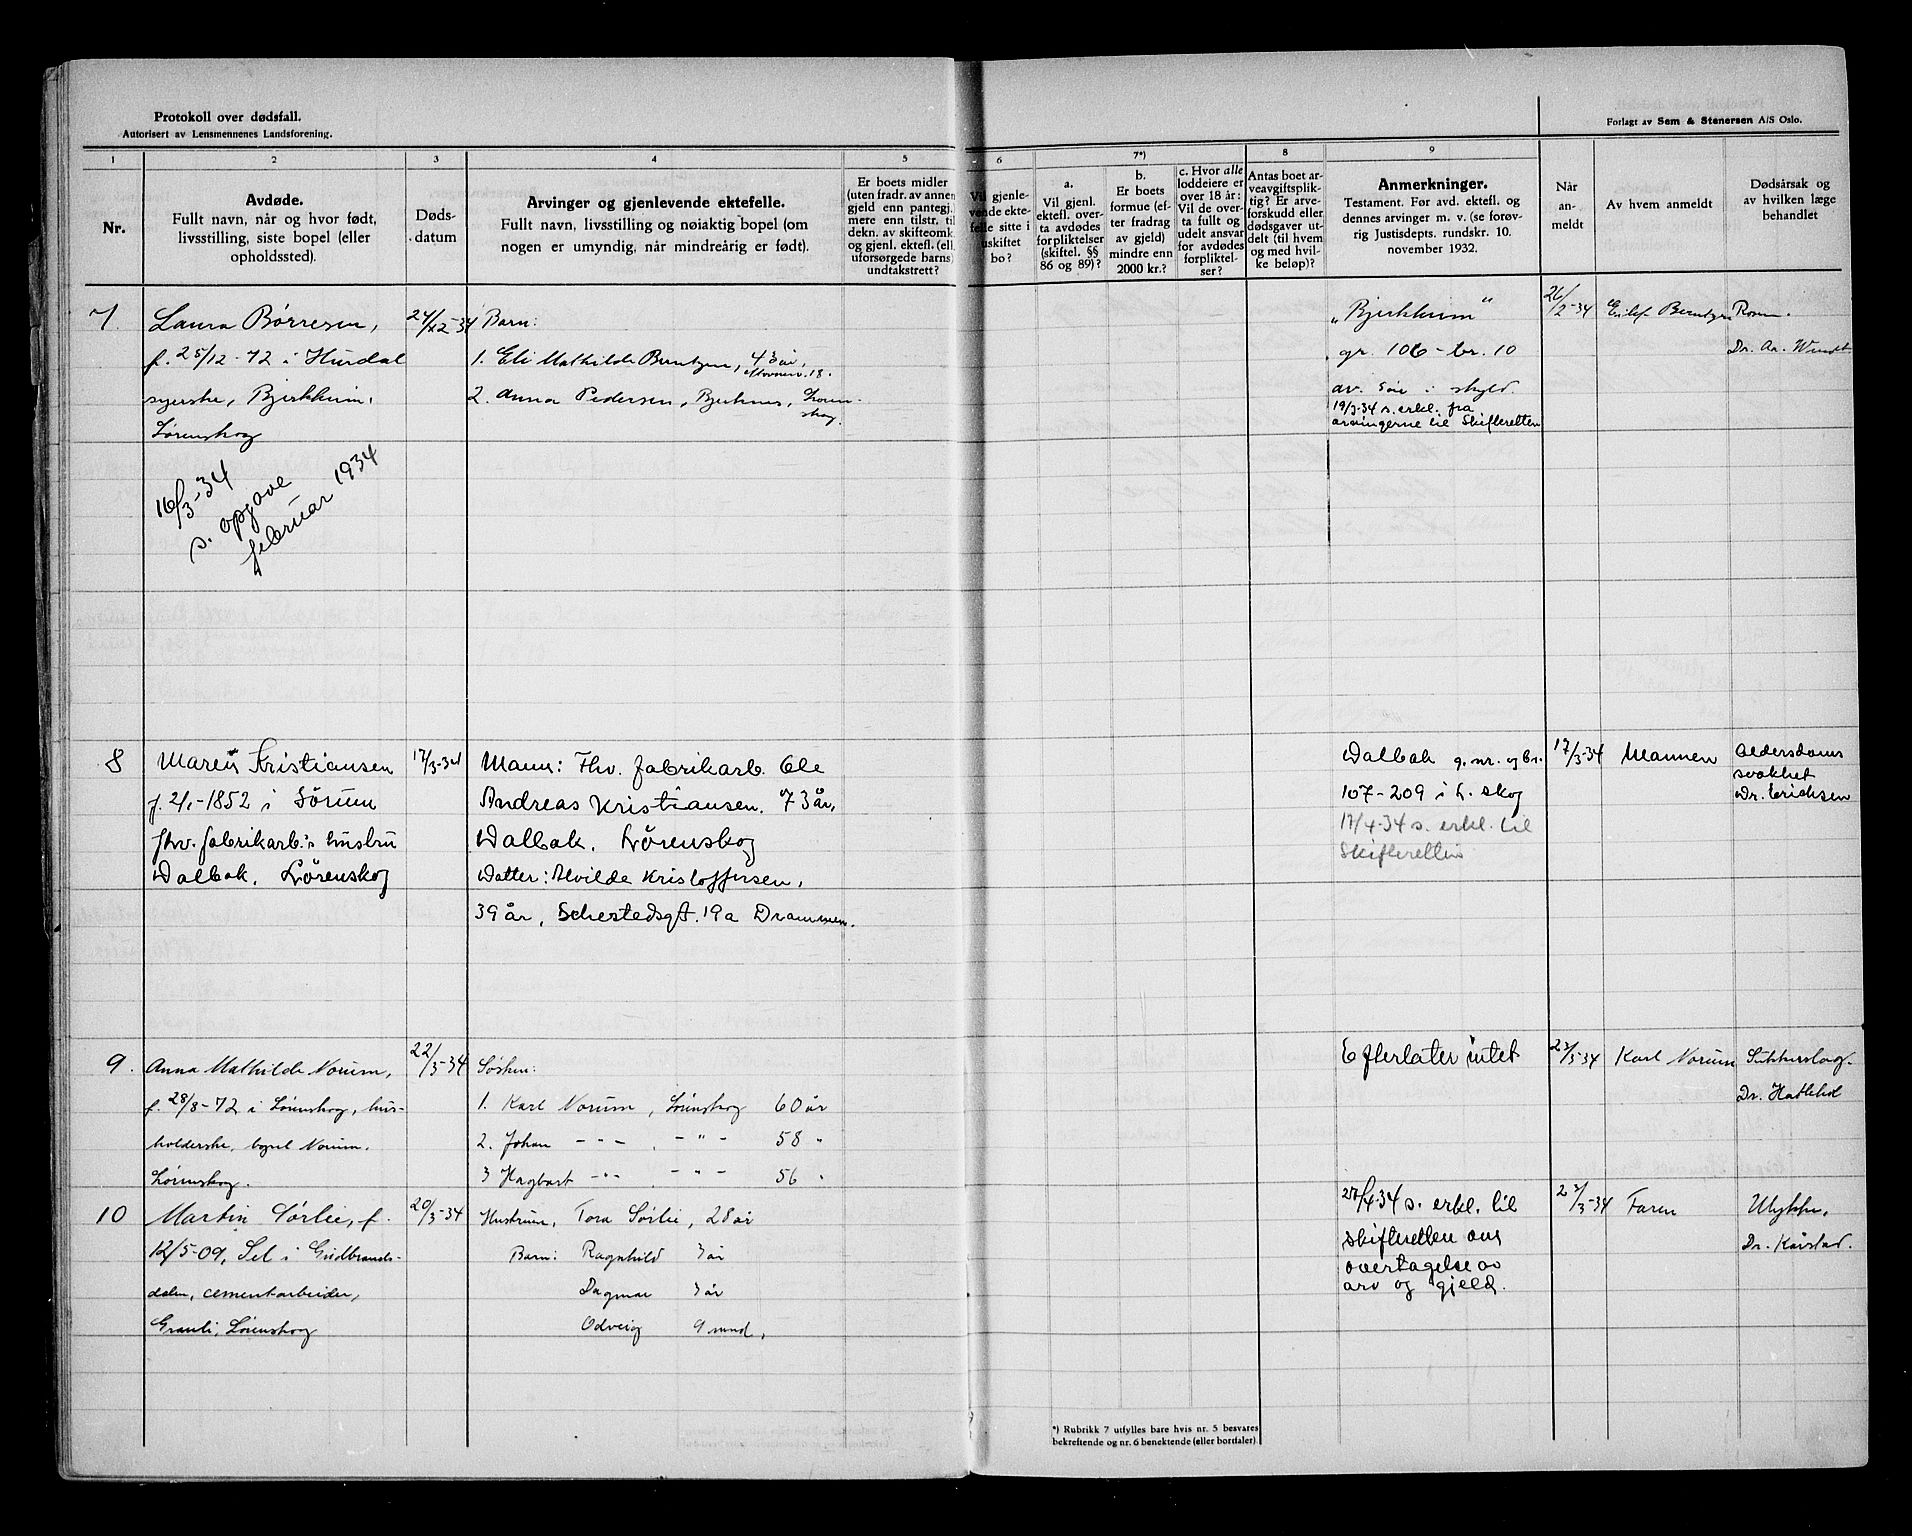 Protokoll over dødsfall.
Autorisert av Lensmennenes Landsforening.
Forlagt av Sem & Stenersen A/S Oslo.
1 2 3 4 5 6 7*) 8 9
Nr.
Avdøde.
Fullt navn, når og hvor født,
livsstilling, siste bopel (eller
opholdssted).
Døds-
datum
Arvinger og gjenlevende ektefelle.
Fullt navn, livsstilling og nøiaktig bopel (om
nogen er umyndig, når mindreårig er født).
Er boets midler
(uten fradr. av annen
gjeld enn pantegj.)
mere enn tilstr. til
dekn. av skifteomk.
og gjenl. ektef. (ell.
uforsørgede barns)
undtakstrett?
Vil gjenle-
vende ekte-
felle sitte i
uskiftet
bo?
a.
Vil gjenl.
ektefl. over-
ta avdødes
forpliktelser
(skiftel. §§
86 og 89)?
b.
Er boets
formue (ef-
ter fradrag
av gjeld)
mindre enn
2000 kr.?
c. Hvor alle
loddeiere er
over 18 år:
Vil de over-
ta fullt og
udelt ansvar
for avdødes
forpliktel-
ser?
Antas boet ar-
veavgiftsplik-
tig? Er arve-
forskudd eller
dødsgaver ut-
delt (til hvem
og med hvil-
ke beløp)?
Anmerkninger.
Testament. Før avd. ektefl. og
dennes arvinger m. v. (se forøv-
rig Justisdepts. rundskr. 10.
november 1932.
Når
an-
meldt
Av hvem anmeldt
Dødsårsak og
av hvilken læge
behandlet
7.
Laura Børresen,
f. 25/12-72 i Hurdal
syerske, Bjerkheim,
Lørenskog
16/3-34
s. opgave
februar 1934
Barn:
1. Eli Mathilde Berntzen, 43 år,
2. Anna Pedersen, Bjerknes, Løren-
skog.
"Bjerkheim"
gr. 106 - br. 10
av. søie i skyld.
19/3-34 s. erkl. fra
arvingerne til Skifteretten
26/2-34
Berntzen
Rosen.
Dr. Aa. Wendt
8
Maren Kristiansen
f. 2/1-1852 i Sørum
fhv. fabrikarb.s hustru
Dalbak, Lørenskog
17/3-34
Mann: Fhv. fabrikarb. Ole
Andreas Kristiansen. 73 år,
Dalbak, Lørenskog
Datter: Alvilde Kristoffersen,
39 år, Schestedsgt. 19a Drammen.
Dalbak g.nr. og br.
107-209 i L. skog
17/4-34 s. erkl. til
Skifteretten
17/3-34
Mannen
Alderdoms
svakhet
Dr. Erichsen
9.
Anna Mathilde Norum,
f. 28/8-72 i Lørenskog, hus-
holderske, bopel Norum,
Lørenskog.
22/3-34
Søsken:
1. Karl Norum, Lørenskog 60 år
2. Johan - " - , - " - 58 "
3 Hagbart - " - , - " - 56 "
Efterlater intet
23/3-34
Karl Norum
Sukkersyke.
Dr. Hatlehol
10
Martin Sørlie, f.
12/5-09, Sel i Gudbrands-
dalen, cementarbeider,
Granli, Lørenskog
20/3-34
Hustruen, Tora Sørlie, 28 år
Barn: Ragnhild 3 år
Dagmar 3 år
Odveig 9 mnd.,
27/4-34 s. erkl. til
skifteretten om
overtagelse av
arv og gjeld.
23/3-34
Faren
Ulykke,
Dr. Kårstad.
*) Rubrikk 7 utfylles bare hvis nr. 5 besvares
bekreftende og nr. 6 benektende (eller bortfaler)